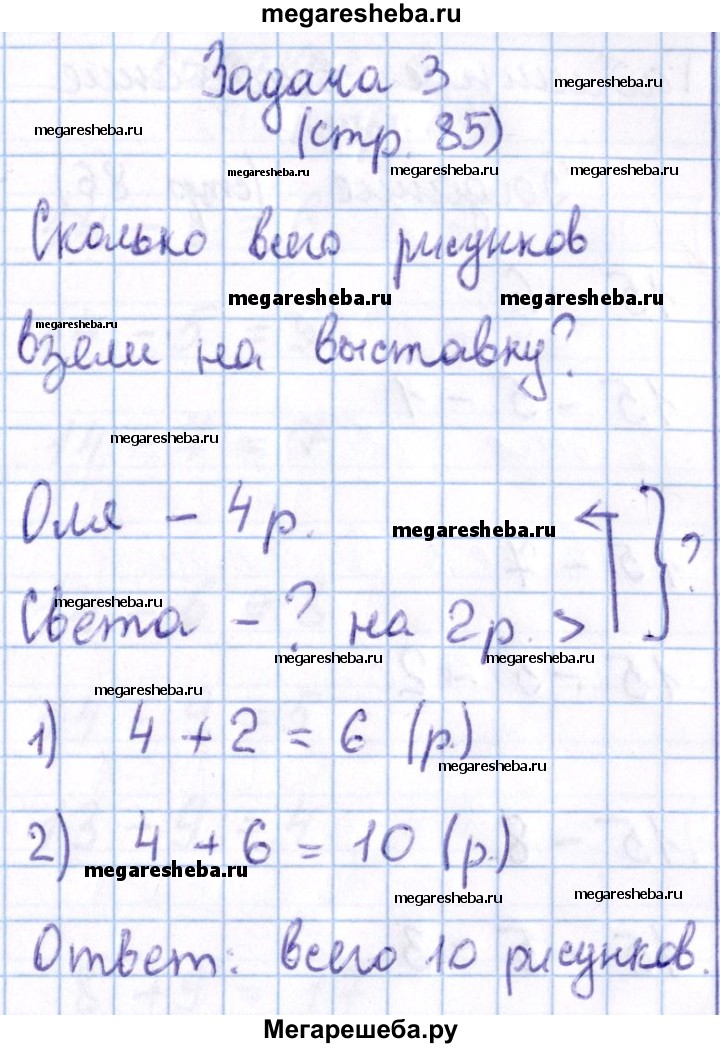 megaresheba.ru
Задача 3
megaresheba.ru
megaresheba.ru
(стр. 85)
megaresheba.ru
megaresheba.ru
megaresheba.ru
Сколько всего рисунков
megaresheba.ru
megaresheba.ru
megaresheba.ru
взели на выставку?
megaresheba.ru
Оля - 4 р.
megaresheba.ru
?
megaresheba.ru
Света - ? на 2 р. >
megaresheba.ru
megaresheba.ru
megaresheba.ru
1) 4 + 2 = 6 (р.)
megaresheba.ru
2) 4 + 6 = 10 (р.)
megaresheba.ru
megaresheba.ru
megaresheba.ru
Ответ: всего 10 рисунков.
Мегарешеба.ру